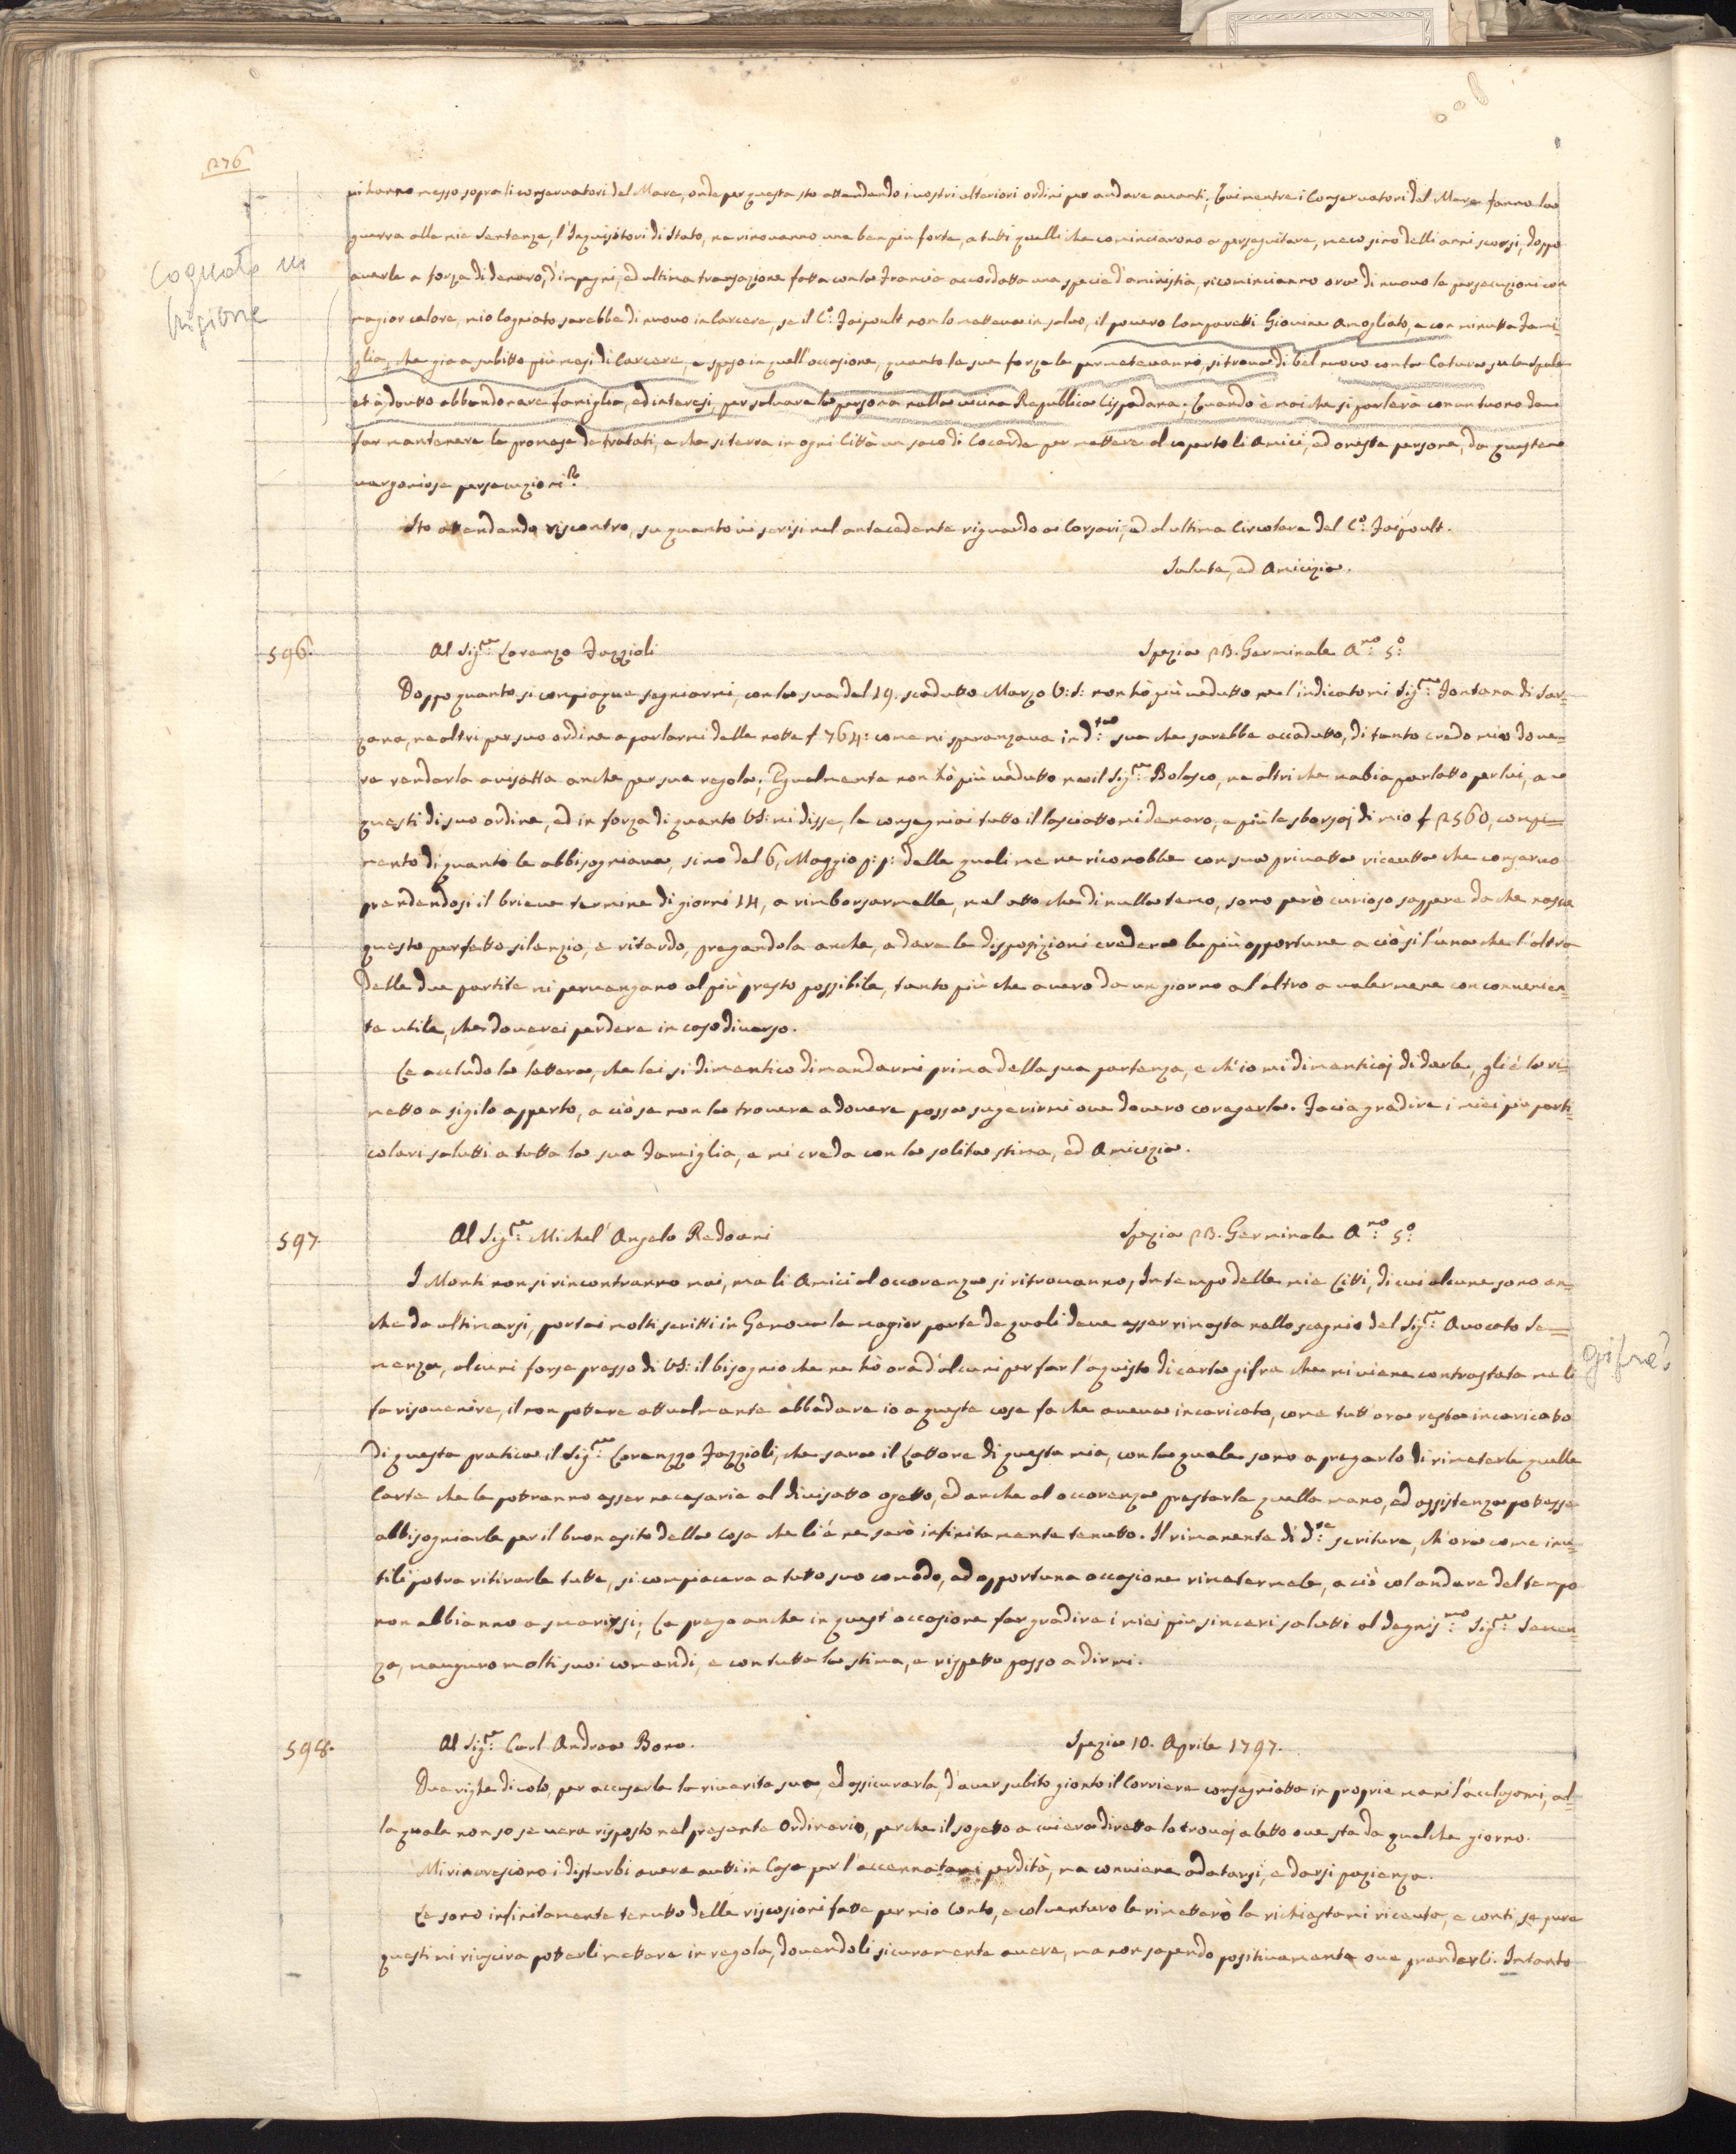 276
mi hanno messo sopra li conservatori del Mare, onde per questa sto attendendo i vostri ulteriori ordini per andare avanti; Quimentre i Conservatori del Mare fanno la
guerra alle mie Sentenze, l'Inquisitori di Stato, ne rinovanno una ben più forte, a tutti quelli che cominciarono a perseguitare, meco sino delli anni scorsi, doppo
averle a forza di denaro, d'impegni, ed ultima transazione fatta con la Francia accordatta una specie d'aministia, ricominciano ora di nuovo le persecuzioni con
Cognato in
prigione
magior calore, mio Cogniato sarebbe di nuovo in Carcere, se il C.º Faipoult non lo metteva in salvo, il povero Comparetti Giovine Amogliato, e con minutta Fami-
glia, che gia a subitto più mesi di Carcere, e speso in quell'occasione, quanto le sue forze le permetevanno, si trova di bel nuovo con la Catura su le spale
et è dovutto abbandonare famiglia, ed interesi, per salvare la persona nella vicina Republica Cispadana; Quando è mai che si parlerà con un tuono da
far mantenere le promese de tratati, e che si terra in ogni Città un saco di Cocarde per mettere al coperto li Amici, ed oneste persone, da queste
vergoniose persecuzioni?
Sto attendendo riscontro, su quanto vi scrisi nel antecedente riguardo a Corsari, ed al ultima Circolare del C.º Faipoult.
Salute, ed Amicizia.
596. Al Sig.re Lorenzo Fazzioli Spezia 23. Germinale A.no 5.º
Doppo quanto si compiaque segniarmi, con la sua del 19. scadutto Marzo V:S: non hò più vedutto ne l'indicatomi Sig.re Fontana di Sar-
zana, ne altri per suo ordine a parlarmi delle notte f 764: come mi speranzava in d.ta sua che sarebbe accadutto, di tanto credo mio dove-
re renderla avisatta anche per sua regola; Egualmente non hò più vedutto ne il Sig.re Bolasco, ne altri che mabia parlatto per lui, a
questi di suo ordine, ed in forza di quanto VS: mi disse, le consegniai tutto il lasciattomi denaro, e più le sborsaj di mio f 2560, compi-
mento di quanto le abbisogniava, sino del 6, Maggio p:p: delle quali me ne riconobbe con sua privatta riceutta che conservo
prendendosi il brieve termine di giorni 14, a rimborsarmelle, nel atto che di nulla temo, sono però curioso sappere da che nasca
questo perfetto silenzio, e ritardo, pregandola anche, a dare le disposizioni credera le più opportune a ciò si l'una che l'altra
delle due partite mi pervengano al più presto possibile, tanto più che avero da un giorno al altro a valermene con convenien-
te utile, che doverei perdere in caso diverso.
Le accludo la lettera, che lei si dimentico di mandarmi prima della sua partenza, e ch'io mi dimenticaj di darle, gliè la ri-
metto a sigilo apperto, a ciò se non la trovera a dovere possa sugerirmi ove dovero coregerla. Facia gradire i miei più parti-
colari salutti a tutta la sua Famiglia, e mi creda con la solita stima, ed Amicizia.
597. Al Sig.re Michel' Angelo Redoani Spezia 23. Germinale A.no 5.º
I Monti non si rincontranno mai, ma li Amici al occorenza si ritrovanno, In tempo delle mie Litti, di cui alcune sono an-
che da ultimarsi, portai molti scritti in Genova la magior parte de quali deve esser rimasta nello scagnio del Sig.re Avocato Se-
menza, alcuni forse presso di VS: il bisognio che ne hò ora d'alcuni per far l'aquisto di certa gifra che mi viene contrastata me li
gifra?
fa risovenire, il non pottere attualmente abbadare io a queste cose fa che aveva incaricato, come tutt'ora resta incaricato
di questa pratica il Sig.re Lorenzzo Fazzioli, che sara il Lattore di questa mia, con la quale sono a pregarlo di rimeterle quelle
Carte che le potranno esser necesarie al divisatto ogetto, ed anche al occorenza prestarle quella mano, ed assistenza potesse
abbisogniarle per il buon esito della cosa che li è ne sarò infinitamente tenutto. Il rimanente di d.te scriture, ch'ora come inu-
tili potra ritirarle tutte, si compiacera a tutto suo comodo, ad opportuna occasione rimetermele, a ciò col andare del tempo
non abbianno a smarirsi; Le prego anche in quest'occasione far gradire i miei più sinceri salutti al degnis.mo Sig.re Semen-
za, m'auguro molti suoi comandi, e con tutta la stima, e rispetto passo a dirmi.
598. Al Sig.re Carl' Andrea Bono. Spezia 10. Aprile 1797.
Due righe di volo, per accusarle la riverita sua, ed assicurarla, d'aver subito gionto il Corriere consegniatta in proprie mani l'acclusami, al-
la quale non so se vera risposto nel presente Ordinario, perche il sogetto a cui era diretta lo trovaj a letto ove sta da qualche giorno.
Mi rincrescono i disturbi avere autti in Casa per l'accennatami perdità, ma conviene adatarsi, e darsi pazienza.
Le sono infinitamente tenutto delle riscosioni fatte per mio Conto, e col venturo le rimetterò la richiestami riceuta, e conti, se pure
questi mi riuscira potterli mettere in regola, dovendoli sicuramente avere, ma non sapendo positivamente ove prenderli. Intanto